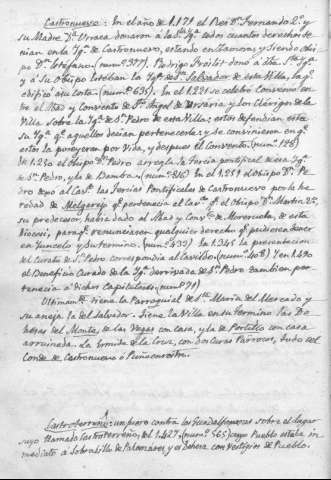 Castronuevo: En el año de 1.171 el Rei Dn. Fernando 2º. y
su Madre Dª. Urraca donaron á la Sta. Igª. todos quantos derechos te-
nian en la Igª. de Castronuevo, estando en Zamora, y siendo obis-
po Dn. Estéfano. (numº. 377). Pedrigo Froilez donó á dha. Sta. Igª.
y á su Obispo Estéban la Igª. de Sn. Salvador de esta Villa, la qe.
edificó á su costa. (numº. 635). En el 1.221 se celebró Convenio en-
tre el Abad y Convento de Sn. Angel de Ursaria y los Clérigos de la
Villa sobre la Igª. de Sn. Pedro de esta Villa: estos defendian esta
su Igª. qe. aquellos decian pertenecerla y se convinieron en qe.
estos la poseyeran por Vida, y despues el Convento. (numº. 128)
de 1.230 el Obispo Dn. Pedro arregla la Tercia pontifical de esa Igª.
de Sn. Pedro, y la de Dambas. (numº. 816) En el 1.251 el Obispo Dn. Pe-
dro dexó al Cavº. las Tercias Pontificales de Castronuevo por la he-
redad de Melgerejo qe. pertenecia al Cavº. qe. el Obispo Dn. Martin 2º.
su predecesor, habia dado al Abad y Convº. de Moreruela, de esta
Diócesi, para qe. renunciasen qualquier derecho qe. pudieran tener
en Juncelo y su termino. (numº. 433) La 1.345 la presentacion
del Curato de Sn. Pedro correspondia al Cavildo. (numº. 408) Y en 1.490
el Beneficio Curado de la Igª. derrivada de Sn. Pedro tambien per-
tenecia á dichos Capitulares. (numº. 71)
Ultimamte. tiene la Parroquial de Sta. María del Mercado y
su aneja la del Salvador. Tiene la Villa en su termino las De-
hesas del Monte, de las Vegas con casa, y la de Portillo con casa
arruinada. La Ermita de la Cruz, con dos Curas Párrocos, todo del
Conde de Castronuevo ó Puñoenrostro.
Castroterreño: un pleito contra los Guadalfonceas sobre el lugar
suyo llamado Castroterreño, del 1.427. (numº. 565) cuyo Pueblo estaba in-
mediato á Sobradillo de Palomares, y es Dehesa con vestigios de Pueblo.